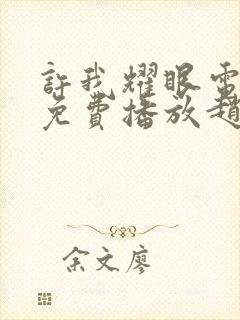 許我耀眼電
免費播放趙
余文廖